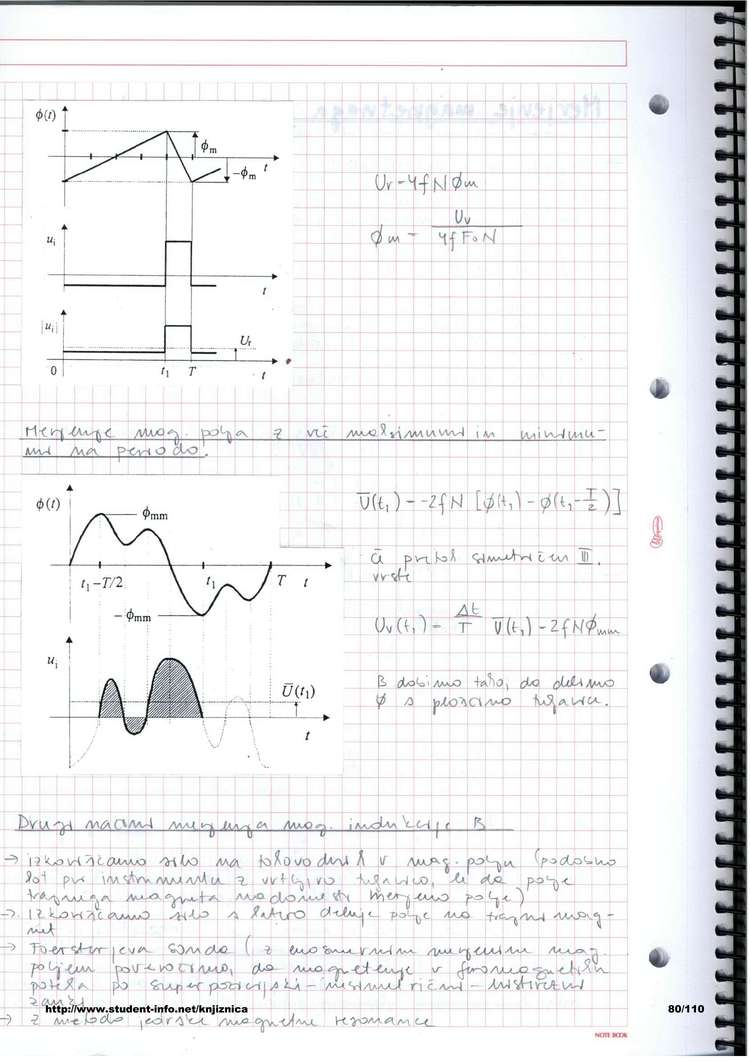 Φ(t)
Φm
t
-Φm
Ur = 4fNΦm
Φm = Uv / 4f Fo N
ui
t
|ui|
Ur
0 t1 T t
Merjenje mag. polja z več maksimumi in minimu-
mi na periodo.
Φ(t)
Φmm
t1-T/2 t1 T t
-Φmm
U̅(t1) = -2fN [Φ(t1) - Φ(t1-T/2)]
če pretok simetričen III.
vrste
Uv(t1) = Δt/T U̅(t1) = 2fNΦmm
ui
U̅(t1)
t
B dobimo tako, da delimo
Φ s ploščino tuljavice.
Drugi načini merjenja mag. indukcije B
→ izkoriščamo silo na tokovodnik v mag. polju (podobno
kot pri instrumentu z vrtljivo tuljavico, le da polje
trajnega magneta nadomesti merjeno polje)
→ Izkoriščamo silo s katero deluje polje na trajni mag-
net
→ Foersterjeva sonda (z enosmernim merjenim mag.
poljem povzročimo, da magnetenje v feromagnetiku
poteka po superpozicijski - nesimetrični - histerezni
zanki
→ z metodo jedrske magnetne resonance
http://www.student-info.net/knjiznica
80/110
NOTE BOOK